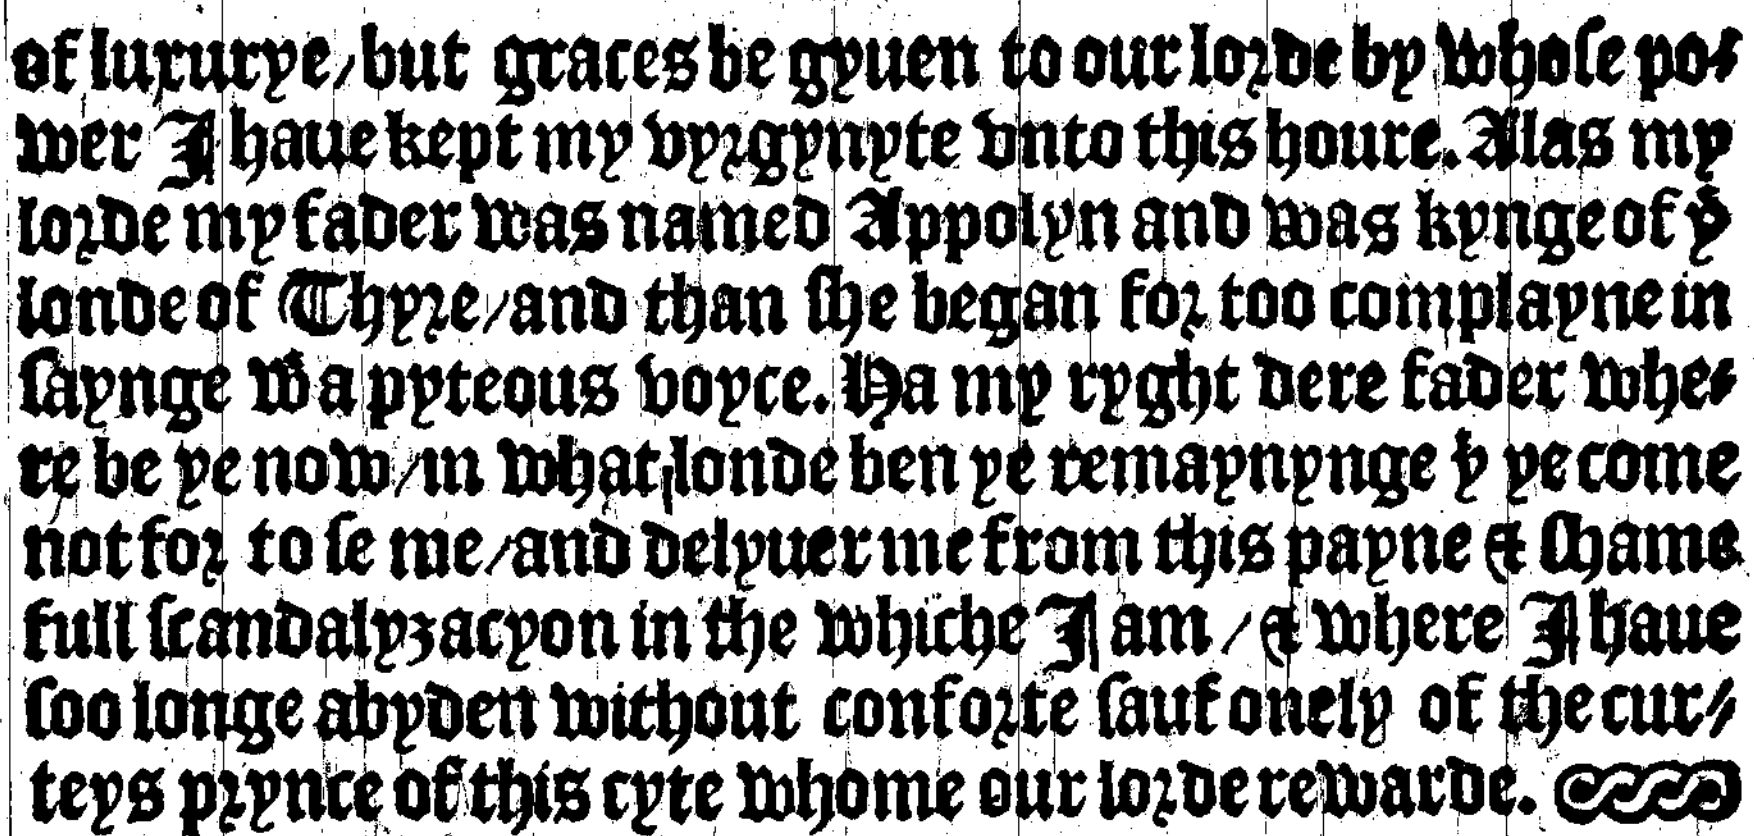 of luxurye/but graces be gyuen to our lorde by whoſe po⸗
wer I haue kept my vyrgynyte vnto this houre. Alas my
lorde my fader was named Appolyn and was kynge of yͤ
londe of Thyre/and than ſhe began for too complayne in
ſaynge wͭ a pyteous voyce. Ha my ryght dere fader whe⸗
re be ye now/in what londe ben ye remaynynge yͭ ye come
not for to ſe me/and delyuer me from this payne & ſhame
full ſcandalyzacyon in the whiche I am/& where I haue
ſoo longe abyden without conforte ſauf onely of the cur⸗
teys prynce of this cyte whome our lorde rewarde.